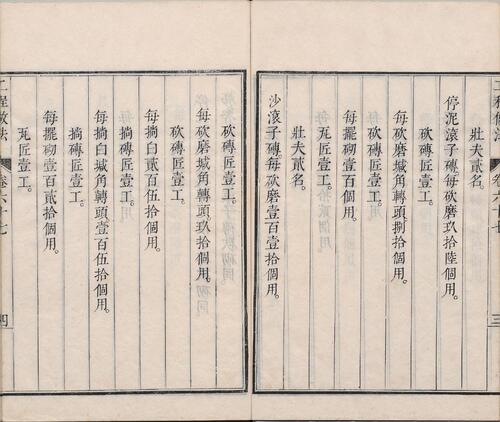 壯夫貳名。
停泥滾子磚。每砍磨玖拾陸個用。
砍磚匠壹工。
每砍磨堿角轉頭捌拾個用。
砍磚匠壹工。
每擺砌壹百個用。
瓦匠壹工。
壯夫貳名。
沙滾子磚。每砍磨壹百壹拾個用。
三
砍磚匠壹工。
每砍磨堿角轉頭玖拾個用。
砍磚匠壹工。
每白貳百伍拾個用。
磚匠壹工。
每白堿角轉頭壹百伍拾個用。
磚匠壹工。
每擺砌壹百貳拾個用。
瓦匠壹工。
工程做法 卷六十七 四